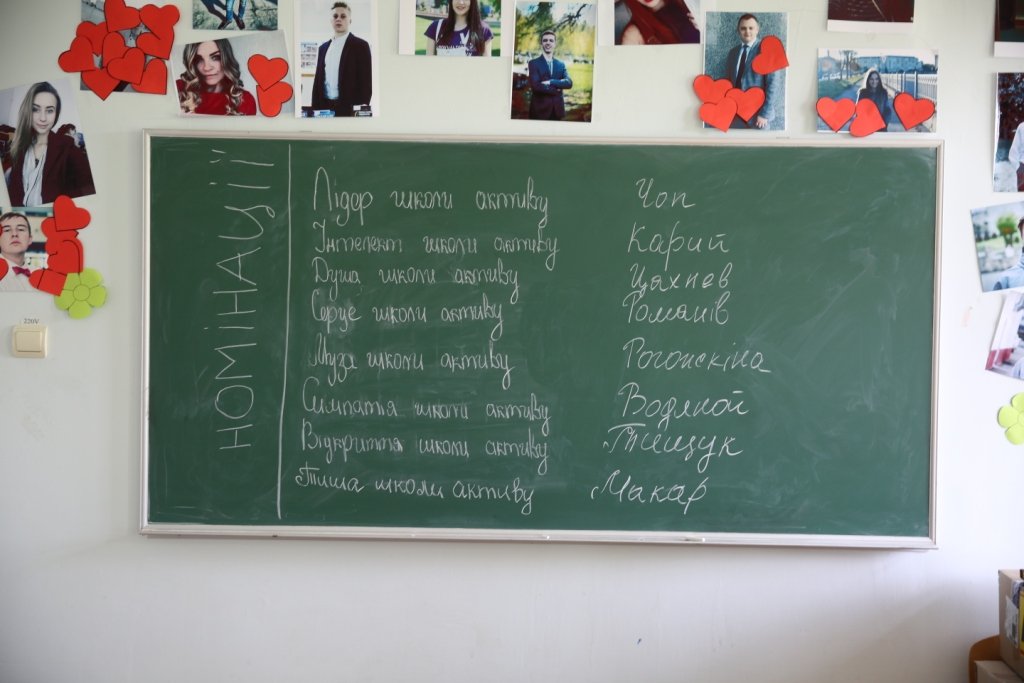 220V
НОМІНАЦІЇ
Лідер школи активу Чоп
Інтелект школи активу Карий
Душа школи активу Цяхнев
Серце школи активу Романів
Муза школи активу Рогожкіна
Симпатія школи активу Водяной
Відкриття школи активу Тищук
Тиша школи активу Макар